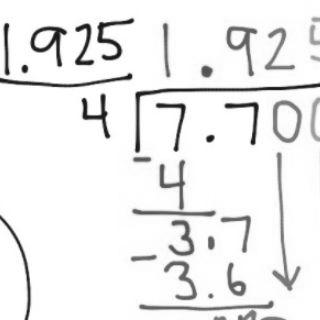 1.925 1.925
4 7.700
- 4
3.7
- 3.6